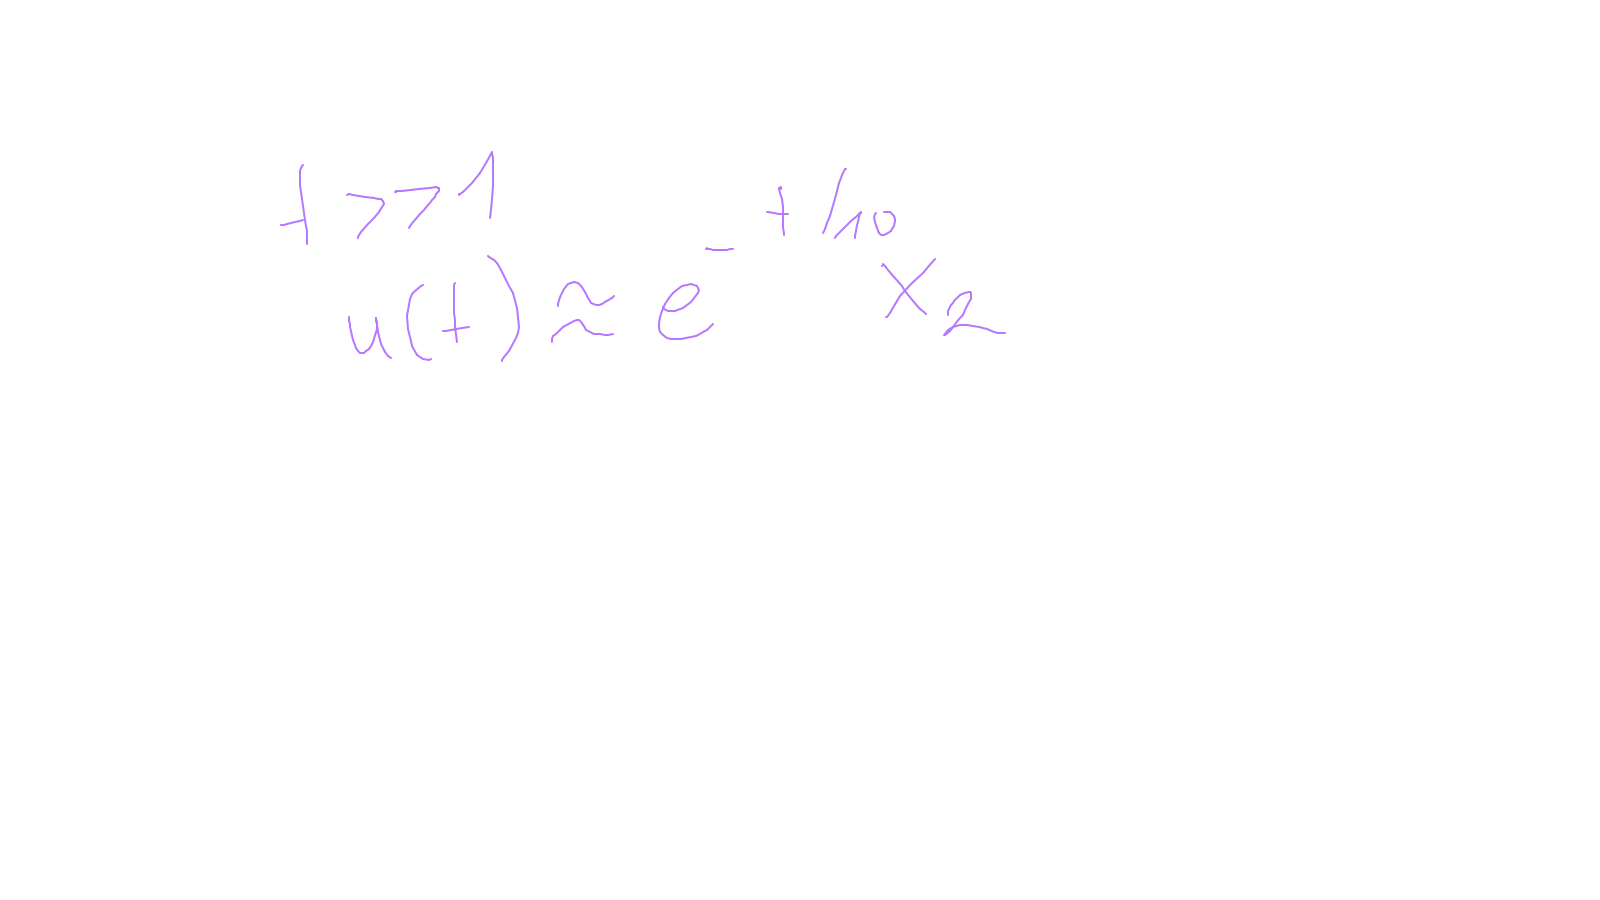 t >> 1
u(t) ≈ e^{-t/10} x_2